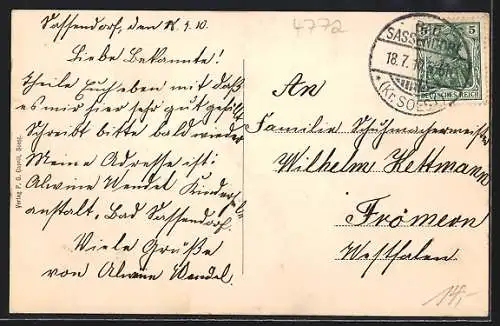 Sassendorf, den 18.7.10.
4772
Liebe Bekannte!
Theile Euch eben mit daß
es mir hier sehr gut gefällt
Schreibt bitte bald wieder
Meine Adresse ist:
Alwine Wendel Kinderheil-
anstalt, Bad Sassendorf.
Viele Grüße
von Alwine Wendel.
Verlag F. G. Capelli, Soest.
SASSENDORF
18.7.10
*(Kr. SOEST)
5 5
DEUTSCHES REICH
An
Familie Schuhmachermeister
Wilhelm Kettmann
Frömern
Westfalen
14,-